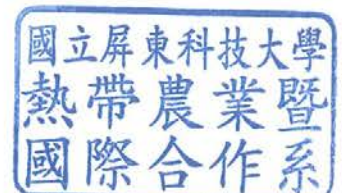 國立屏東科技大學
熱帶農業暨
國際合作系